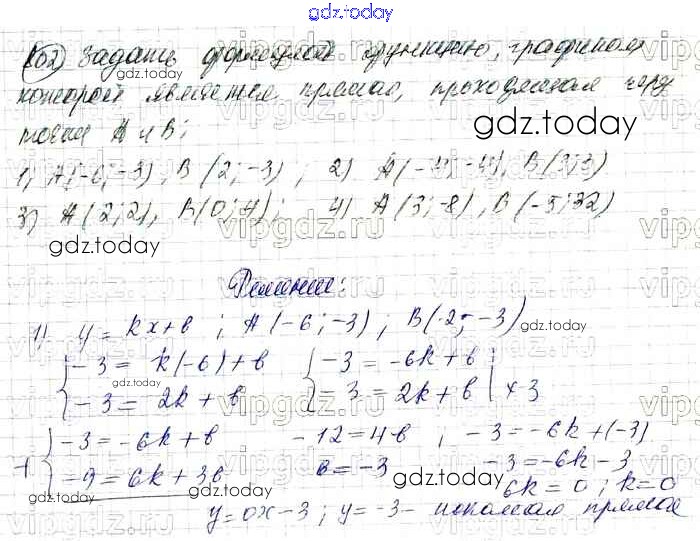 gdz.today
102) Задать формулой функцию, графиком
которой является прямая, проходящая через
точки A и B:
1) A(-6; -3), B(2; -3); 2) A(-4; -4), B(3; 3)
3) A(2; 2), B(0; 4); 4) A(3; -8), B(-5; 32)
Решение:
1) y = kx + b; A(-6; -3); B(2; -3)
{-3 = k(-6) + b {-3 = -6k + b
{-3 = 2k + b {-3 = 2k + b | x 3
+ {-3 = -6k + b -12 = 4b; -3 = -6k + (-3)
{-9 = 6k + 3b b = -3 -3 = -6k - 3
6k = 0; k = 0
y = 0x - 3; y = -3 - искомая прямая
gdz.today
gdz.today
gdz.today
gdz.today
gdz.today
gdz.today
gdz.today
gdz.today
vipgdz.ru